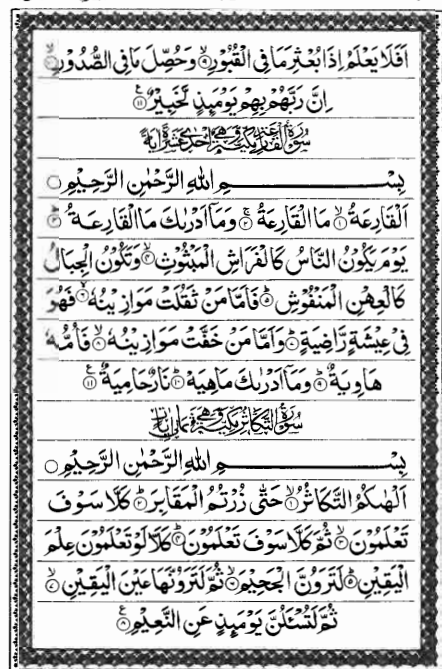 اَفَلَا يَعْلَمُ اِذَا بُعْثِرَ مَا فِى الْقُبُوْرِ ۙ﴿۹﴾ وَحُصِّلَ مَا فِى الصُّدُوْرِ ۙ﴿۱۰﴾
اِنَّ رَبَّهُمْ بِهِمْ يَوْمَئِذٍ لَّخَبِيْرٌ ﴿۱۱﴾ ع
سُوْرَةُ الْقَارِعَةِ مَكِّيَّةٌ وَّهِىَ اِحْدٰى عَشْرَةَ اٰيَةً
بِسْمِ اللهِ الرَّحْمٰنِ الرَّحِيْمِ ○
اَلْقَارِعَةُ ۙ﴿۱﴾ مَا الْقَارِعَةُ ۚ﴿۲﴾ وَمَاۤ اَدْرٰىكَ مَا الْقَارِعَةُ ؕ﴿۳﴾
يَوْمَ يَكُوْنُ النَّاسُ كَالْفَرَاشِ الْمَبْثُوْثِ ۙ﴿۴﴾ وَتَكُوْنُ الْجِبَالُ
كَالْعِهْنِ الْمَنْفُوْشِ ؕ﴿۵﴾ فَاَمَّا مَنْ ثَقُلَتْ مَوَازِيْنُهٗ ۙ﴿۶﴾ فَهُوَ
فِىْ عِيْشَةٍ رَّاضِيَةٍ ؕ﴿۷﴾ وَاَمَّا مَنْ خَفَّتْ مَوَازِيْنُهٗ ۙ﴿۸﴾ فَاُمُّهٗ
هَاوِيَةٌ ؕ﴿۹﴾ وَمَاۤ اَدْرٰىكَ مَاهِيَهْ ؕ﴿۱۰﴾ نَارٌ حَامِيَةٌ ﴿۱۱﴾ ع
سُوْرَةُ التَّكَاثُرِ مَكِّيَّةٌ وَّهِىَ ثَمَانِىْ اٰيَاتٍ
بِسْمِ اللهِ الرَّحْمٰنِ الرَّحِيْمِ ○
اَلْهٰىكُمُ التَّكَاثُرُ ۙ﴿۱﴾ حَتّٰى زُرْتُمُ الْمَقَابِرَ ؕ﴿۲﴾ كَلَّا سَوْفَ
تَعْلَمُوْنَ ۙ﴿۳﴾ ثُمَّ كَلَّا سَوْفَ تَعْلَمُوْنَ ؕ﴿۴﴾ كَلَّا لَوْ تَعْلَمُوْنَ عِلْمَ
الْيَقِيْنِ ؕ﴿۵﴾ لَتَرَوُنَّ الْجَحِيْمَ ۙ﴿۶﴾ ثُمَّ لَتَرَوُنَّهَا عَيْنَ الْيَقِيْنِ ۙ﴿۷﴾
ثُمَّ لَتُسْئَلُنَّ يَوْمَئِذٍ عَنِ النَّعِيْمِ ﴿۸﴾ ع